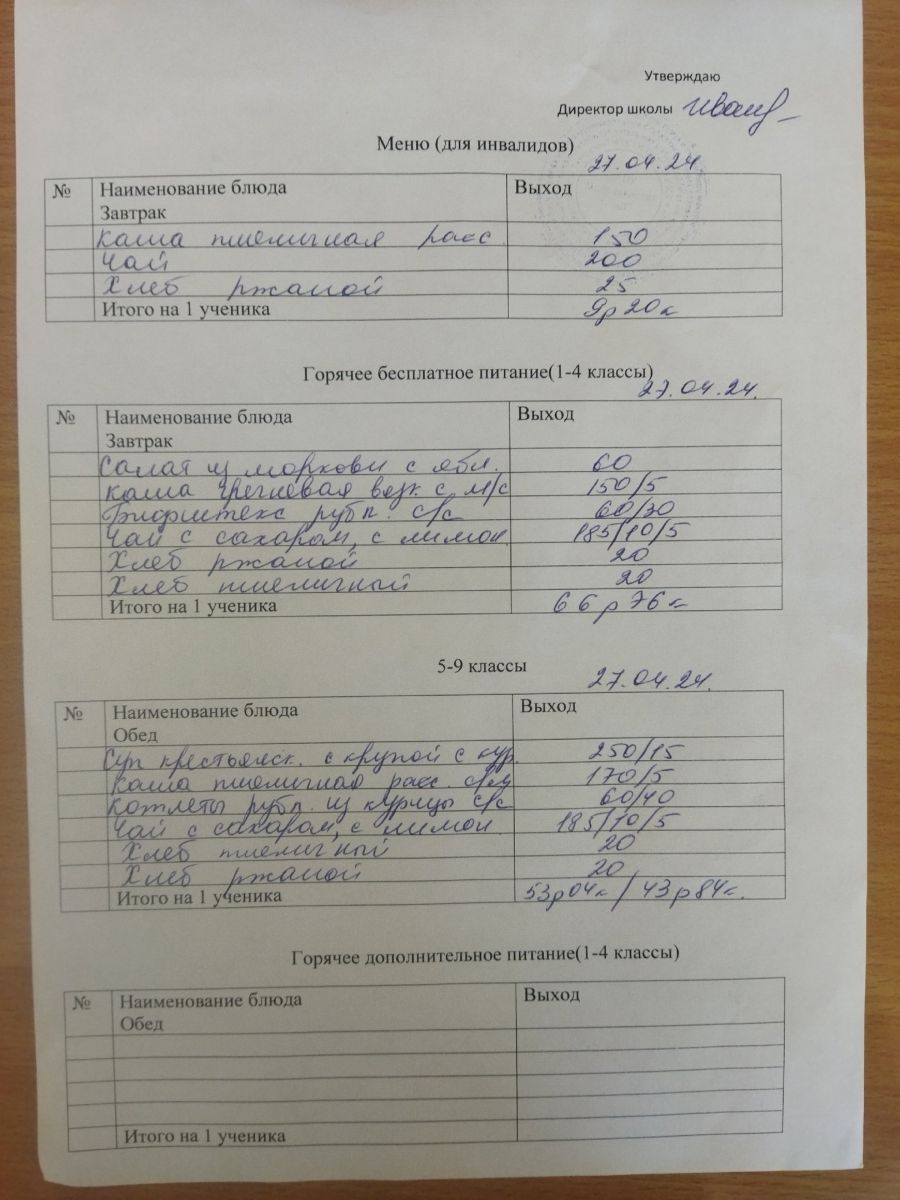 Утверждаю
Директор школы
Меню (для инвалидов)
27.04.24.
№ Наименование блюда Выход
Завтрак
каша пшеничная расс. 150
Чай 200
Хлеб ржаной 25
Итого на 1 ученика 9р20к
Горячее бесплатное питание(1-4 классы)
27.04.24.
№ Наименование блюда Выход
Завтрак
Салат из моркови с ябл. 60
каша гречневая вязк с м/с 150/5
Бифштекс рубл. с/с 60/30
Чай с сахаром, с лимон. 185/10/5
Хлеб ржаной 20
Хлеб пшеничный 20
Итого на 1 ученика 66р76к
5-9 классы
27.04.24.
№ Наименование блюда Выход
Обед
Суп крестьянск. с крупой с кур. 250/15
каша пшеничная расс. 170/5
котлеты рубл. из курицы с/с 60/40
Чай с сахаром, с лимон 185/10/5
Хлеб пшеничный 20
Хлеб ржаной 20
Итого на 1 ученика 53р04к/43р84к.
Горячее дополнительное питание(1-4 классы)
№ Наименование блюда Выход
Обед
Итого на 1 ученика